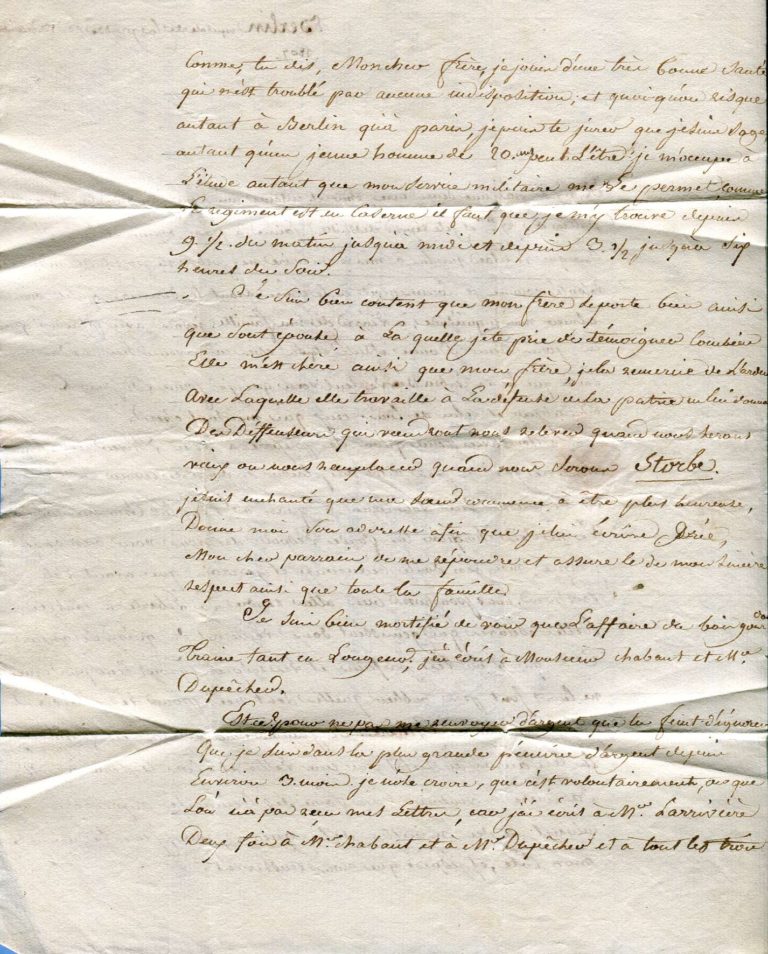 Comme, tu dis, Mon cher frère, je jouis d'une très bonne santé
qui n'est troublé par aucune indisposition, et quoiqu'on risque
autant à Berlin qu'à paris, je puis te jurer que je suis sage,
autant qu'un jeune homme de 20. ans peut L'être, je m'occupe à
L'étude autant que mon service militaire me Le permet, comme
Le regiment est en Caserne il faut que je m'y trouve depuis
9. 1/2. du matin jusqu'à midi et depuis 3. 1/2 jusqu'à six
heures du Soir.
Je suis bien content que mon frère se porte bien ainsi
que Son épouse à La quelle je te prie de témoigner Combien
Elle m'est chéré ainsi que mon frère, je la remercie de L'ardeur
Avec Laquelle elle travaille à La défense de La patrie en lui donnant
Des Deffenseurs qui viendront nous relever quand nous serons
vieux ou nous remplacer quand nous serons Storbe.
je suis enchanté que ma Soeur commence à être plus heureuse,
Donne moi Son adresse afin que je lui écrive Prie,
Mon cher parrain, de me répondre et assure le de mon sincère
respect ainsi que toute la famille
Je suis bien mortifié de voir que L'affaire du bois
traine tant en Longeur, j'ai écris à Monsieur chabaut et Mr
Dupêcher.
Est ce pour ne pas me renvoyer d'argent que tu feint d'ignorer
Que je suis dans la plus grande pénurie d'argent depuis
Environ 3. mois je n'ose croire, que c'est volontairement, ou que
L'on n'a pas reçu mes Lettres, car j'ai écris à Mr Larrivière
Deux fois à Mr chabaut et à Mr Dupêcher et à tout les trois